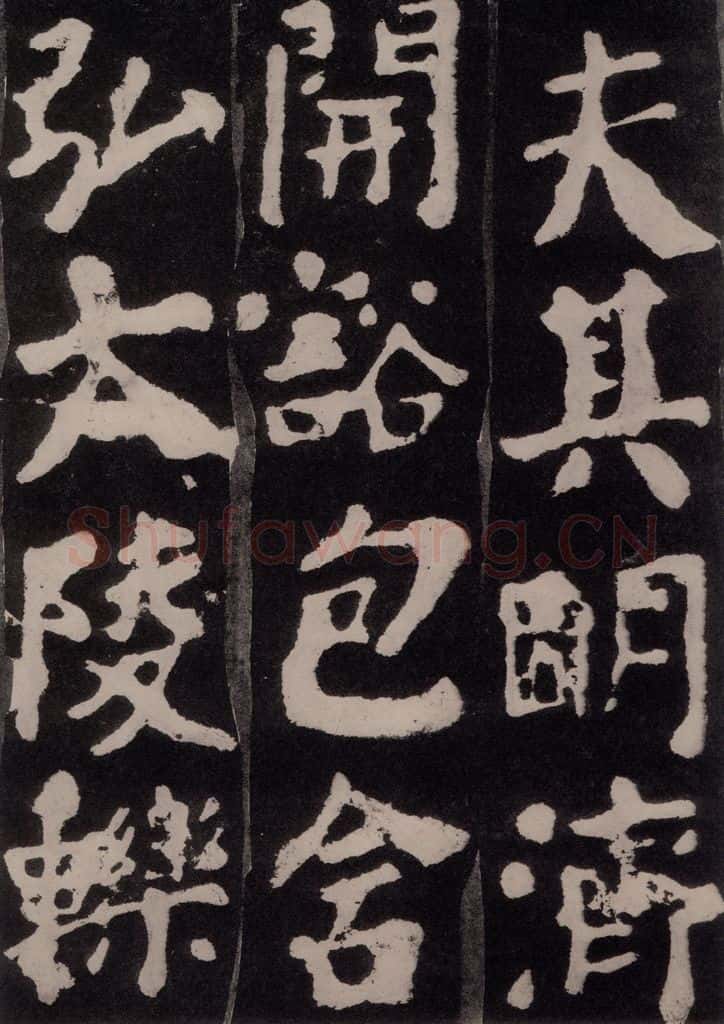 夫其朙濟
開豁包含
弘大陵轢
Shufawang.CN